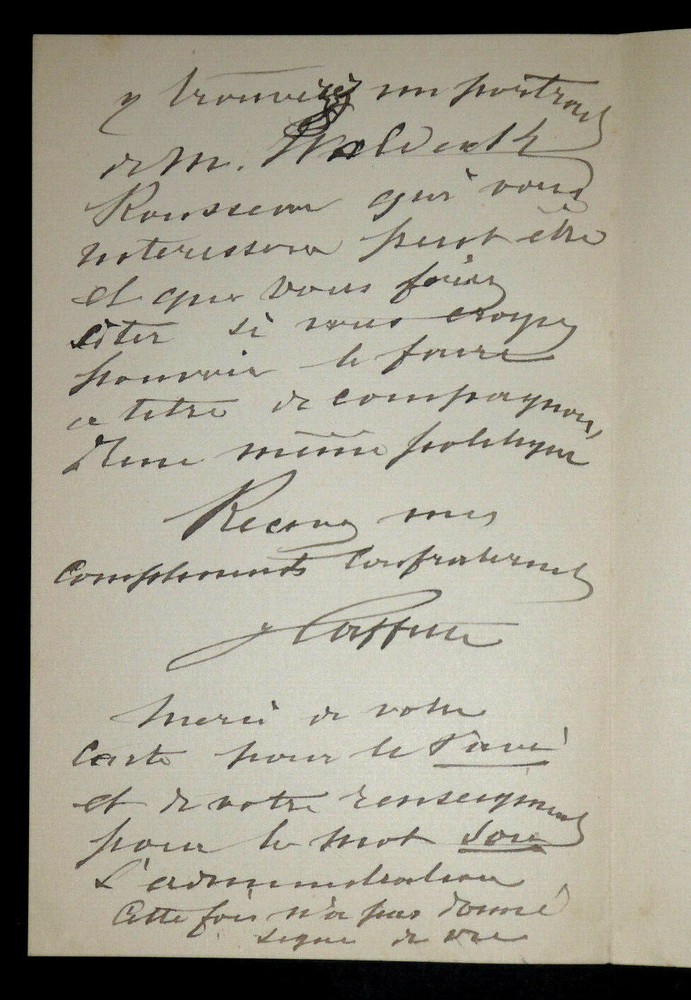 y trouverez un portrait
de M. Waldeck
Rousseau qui vous
interessera peut être
et que vous ferez
citer si vous croyez
pouvoir le faire
a titre de compagnon
d'une même politique
Recevez mes
compliments confraternels
J
Merci de votre
carte pour le Pavé
et de votre renseignement
pour le mot
L'administration
cette fois n'a pas donné
signe de vie